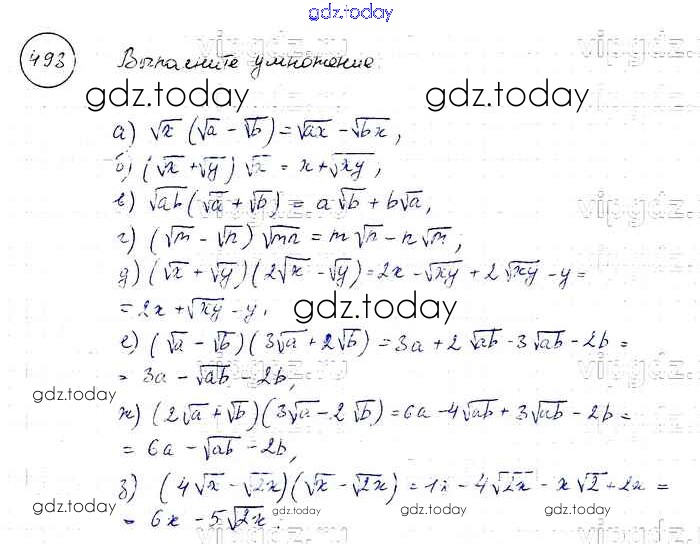 gdz.today
493 Выполните умножение
gdz.today gdz.today
а) √x (√a - √b) = √ax - √bx,
б) (√x + √y) √x = x + √xy,
в) √ab (√a + √b) = a√b + b√a,
г) (√m - √n) √mn = m√n - n√m,
д) (√x + √y)(2√x - √y) = 2x - √xy + 2√xy - y =
= 2x + √xy - y,
gdz.today
е) (√a - √b)(3√a + 2√b) = 3a + 2√ab - 3√ab - 2b =
= 3a - √ab - 2b,
gdz.today
gdz.today
ж) (2√a + √b)(3√a - 2√b) = 6a - 4√ab + 3√ab - 2b =
= 6a - √ab - 2b,
з) (4√x - √2x)(√x - √2x) = - 4√2x - x√2 + 2x =
= 6x - 5√2x.
gdz.today gdz.today